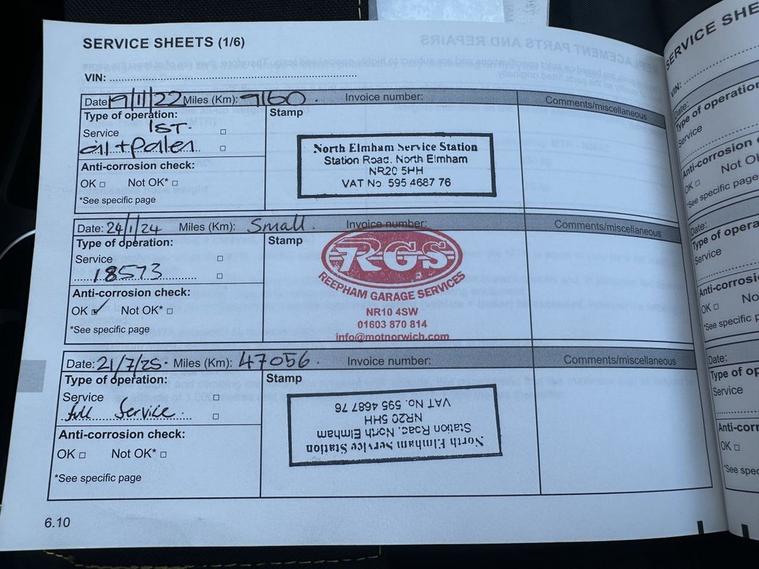 SERVICE SHEETS (1/6)
VIN:
Date: 19/11/22 Miles (Km): 9160. Invoice number: Comments/miscellaneous
Type of operation: Stamp
1ST.
Service
oil + pollen
Anti-corrosion check:
OK Not OK*
*See specific page
North Elmham Service Station
Station Road, North Elmham
NR20 5HH
VAT No 595 4687 76
Date: 24/1/24 Miles (Km): Small Invoice number: Comments/miscellaneous
Type of operation: Stamp
Service
18573
Anti-corrosion check:
OK Not OK*
*See specific page
RGS
REEPHAM GARAGE SERVICES
NR10 4SW
01603 870 814
info@motnorwich.com
Date: 21/7/25. Miles (Km): 47056. Invoice number: Comments/miscellaneous
Type of operation: Stamp
Service
full Service.
Anti-corrosion check:
OK Not OK*
*See specific page
North Elmham Service Station
Station Road, North Elmham
NR20 5HH
VAT No. 595 4687 76
6.10
SERVICE SHE
VIN:
Date:
Type of operation
Service
Anti-corrosion
OK Not O
*See specific page
Date:
Type of opera
Service
Anti-corrosi
OK No
*See specific p
Date:
Type of op
Service
Anti-corr
OK
*See spe